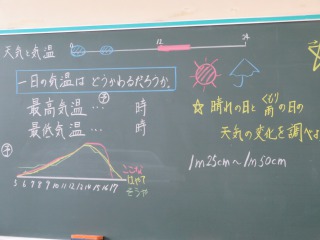 天気と気温
0 12 24
一日の気温は どうかわるだろうか。
予
最高気温… 時
最低気温… 時
☆晴れの日と くもり 雨 の日の
天気の変化を調べよ
1m25cm～1m50cm
予
5 6 7 8 9 10 11 12 13 14 15 16 17